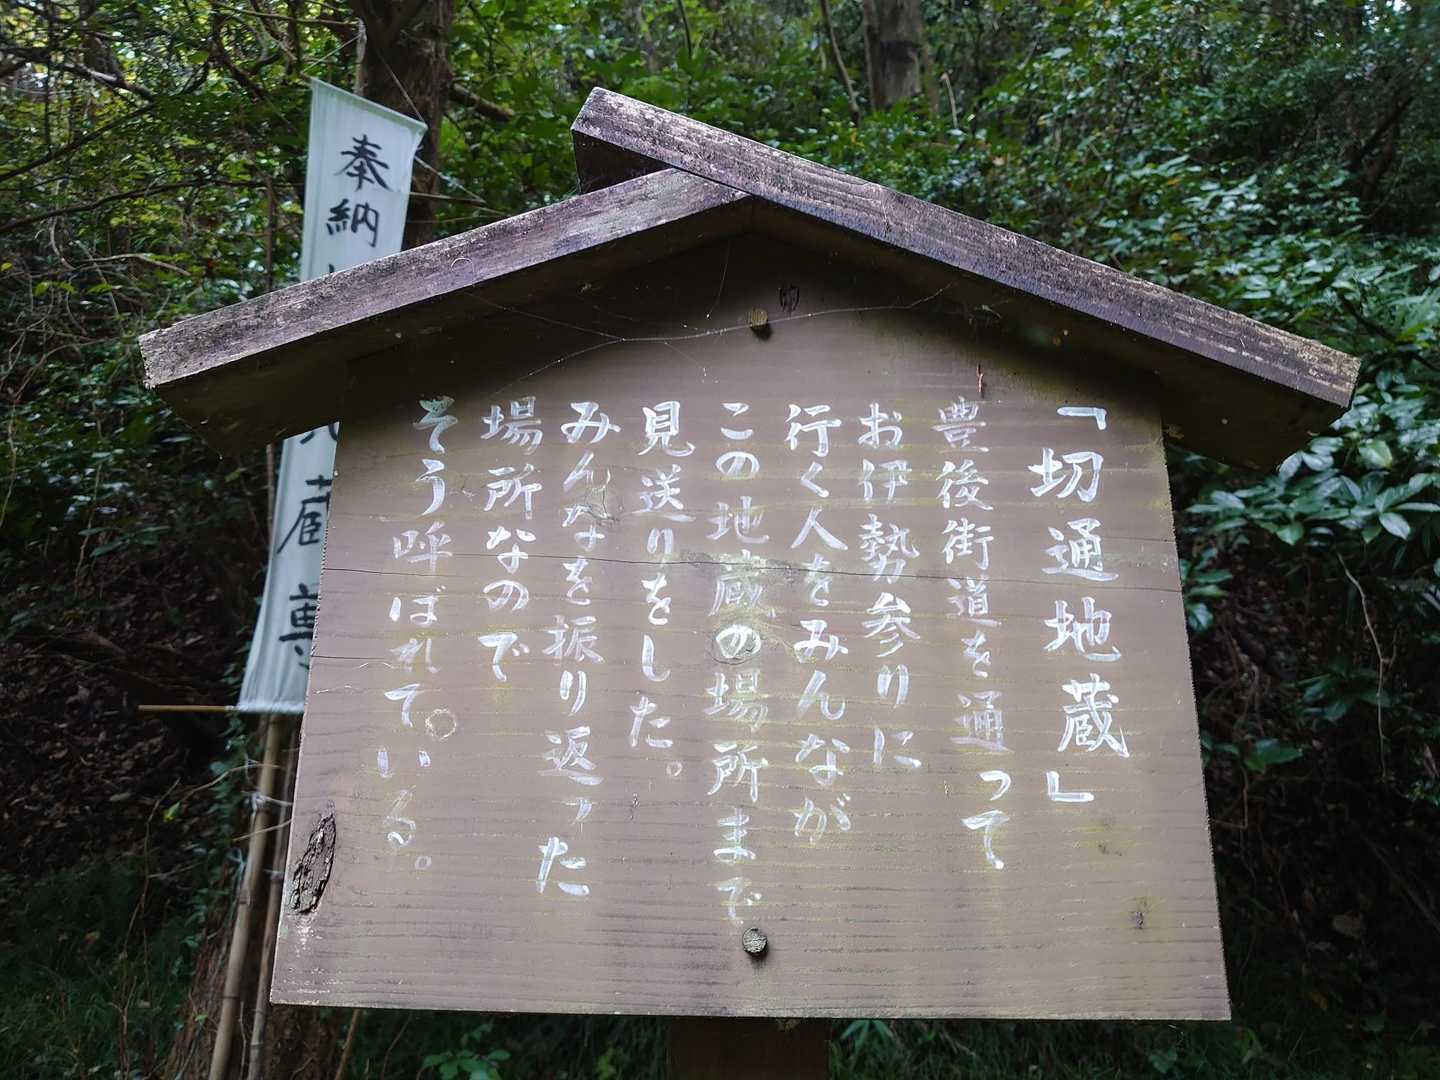 「切通地蔵」
豊後街道を通って
お伊勢参りに
行く人をみんなが
この地蔵の場所まで
見送りをした。
みんなを振り返った
場所なので
そう呼ばれている。
奉納
蔵尊